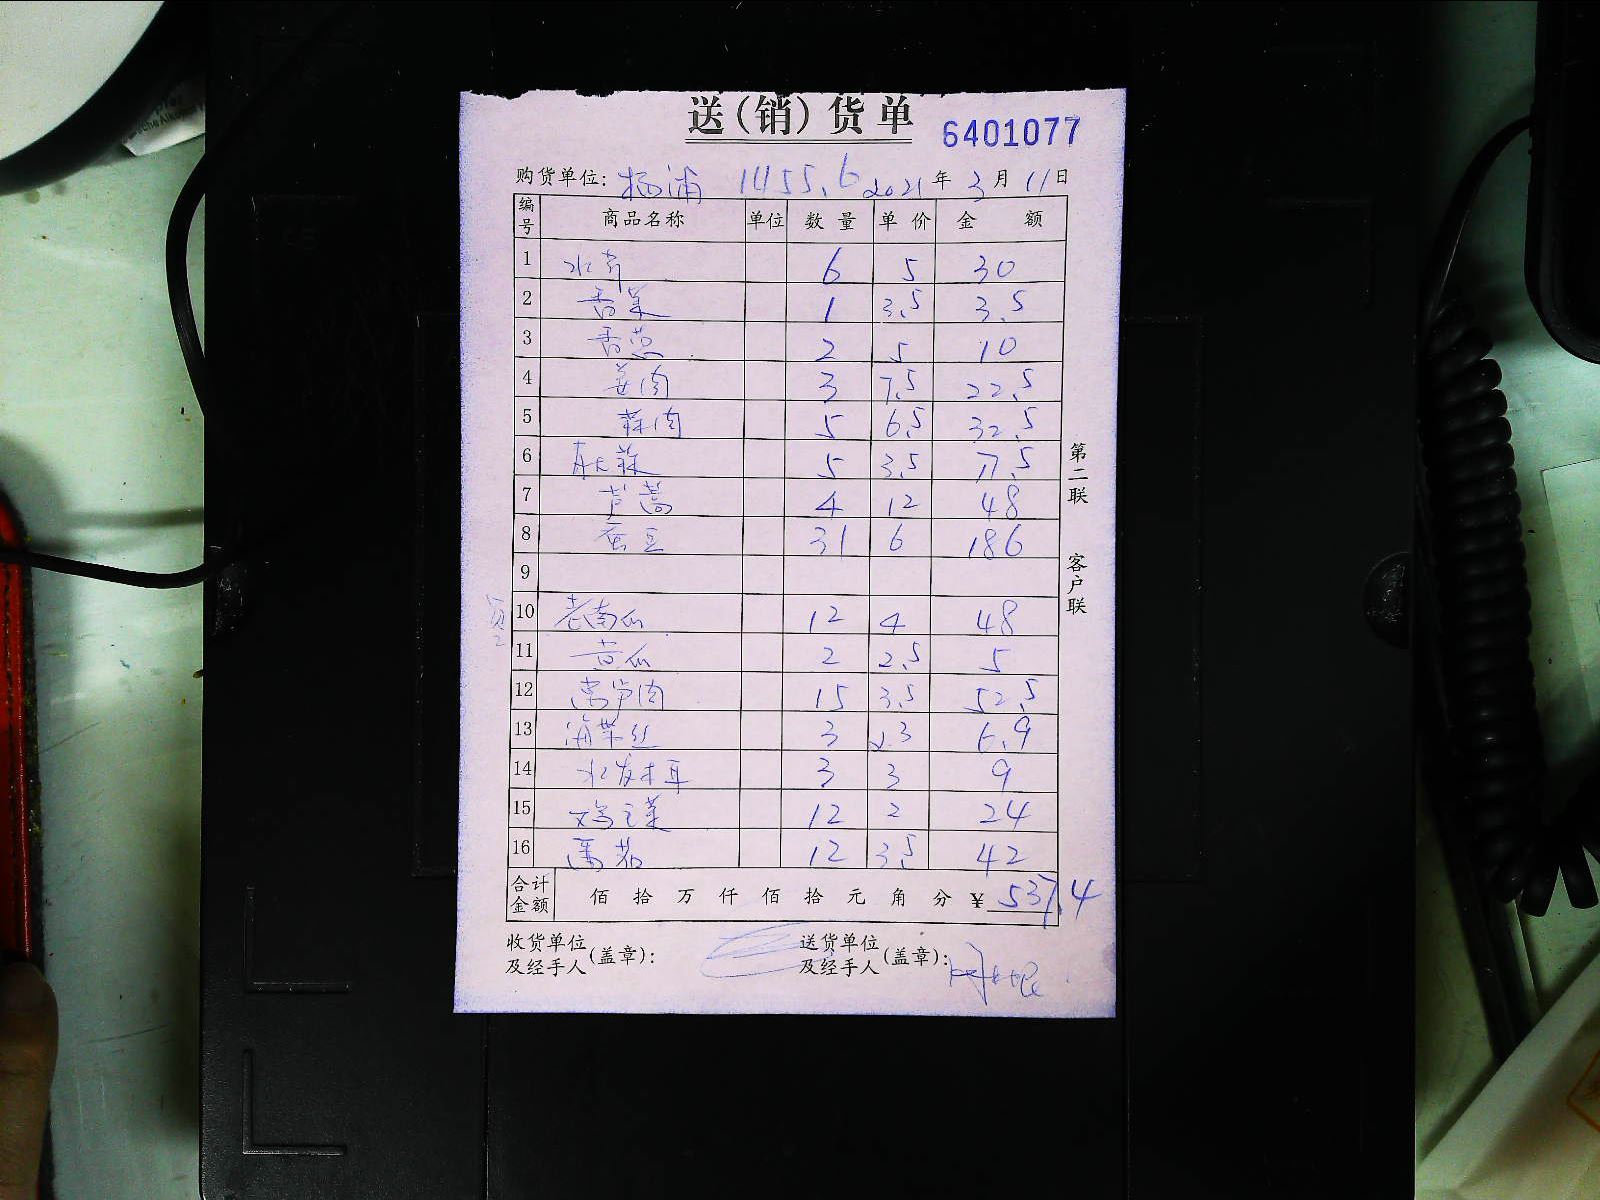 送(销)货单
6401077
购货单位: 杨浦 1455.6 2021年3月11日
编号 商品名称 单位 数量 单价 金额
1 水芹 6 5 30
2 香菜 1 3.5 3.5
3 香葱 2 5 10
4 姜肉 3 7.5 22.5
5 蒜肉 5 6.5 32.5
6 3.5 17.5 5
7 芦蒿 4 12 48
8 蚕豆 31 6 186
9
10 老南瓜 12 4 48
11 黄瓜 2 2.5 5
12 莴笋肉 15 3.5 52.5
13 海带丝 3 2.3 6.9
14 水发木耳 3 3 9
15 鸡毛菜 12 2 24
16 番茄 12 3.5 42
合计金额 佰拾万仟佰拾元角分 ¥ 537.4
收货单位及经手人(盖章): 送货单位及经手人(盖章):
第二联 客户联